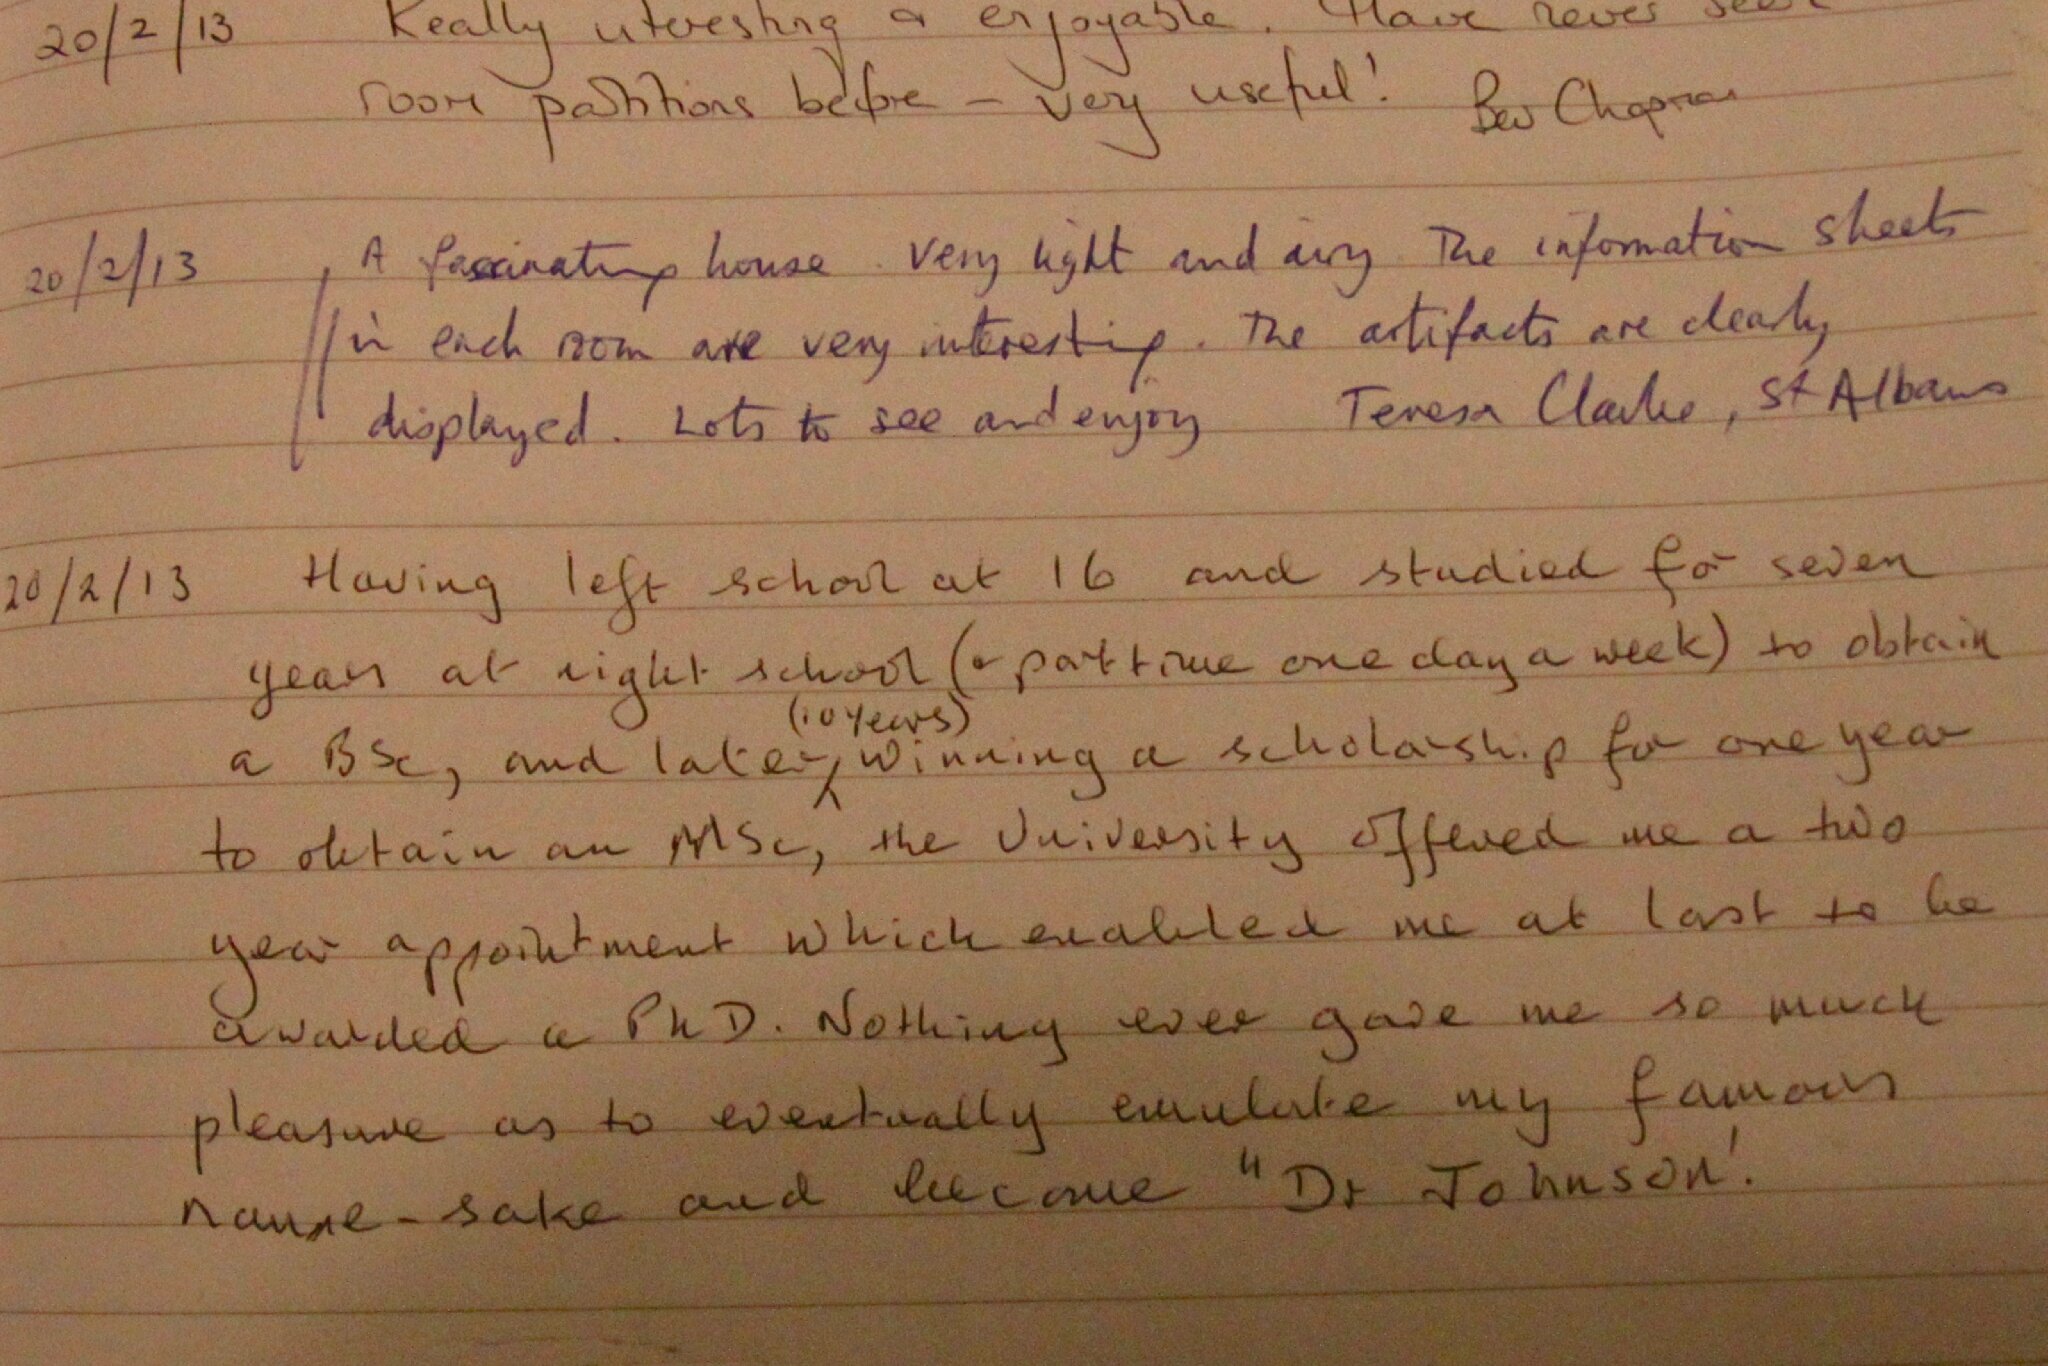 20/2/13 Really interesting & enjoyable. Have never seen
room partitions before - very useful! Bev Chapman
20/2/13 A fascinating house. Very light and airy. The information sheets
in each room are very interesting. The artifacts are clearly
displayed. Lots to see and enjoy Teresa Clarke, St Albans
20/2/13 Having left school at 16 and studied for seven
years at night school (& part time one day a week) to obtain
(10 years)
a BSc, and later, winning a scholarship for one year
to obtain an MSc, the University offered me a two
year appointment which enabled me at last to be
awarded a PhD. Nothing ever gave me so much
pleasure as to eventually emulate my famous
name-sake and become "Dr Johnson!